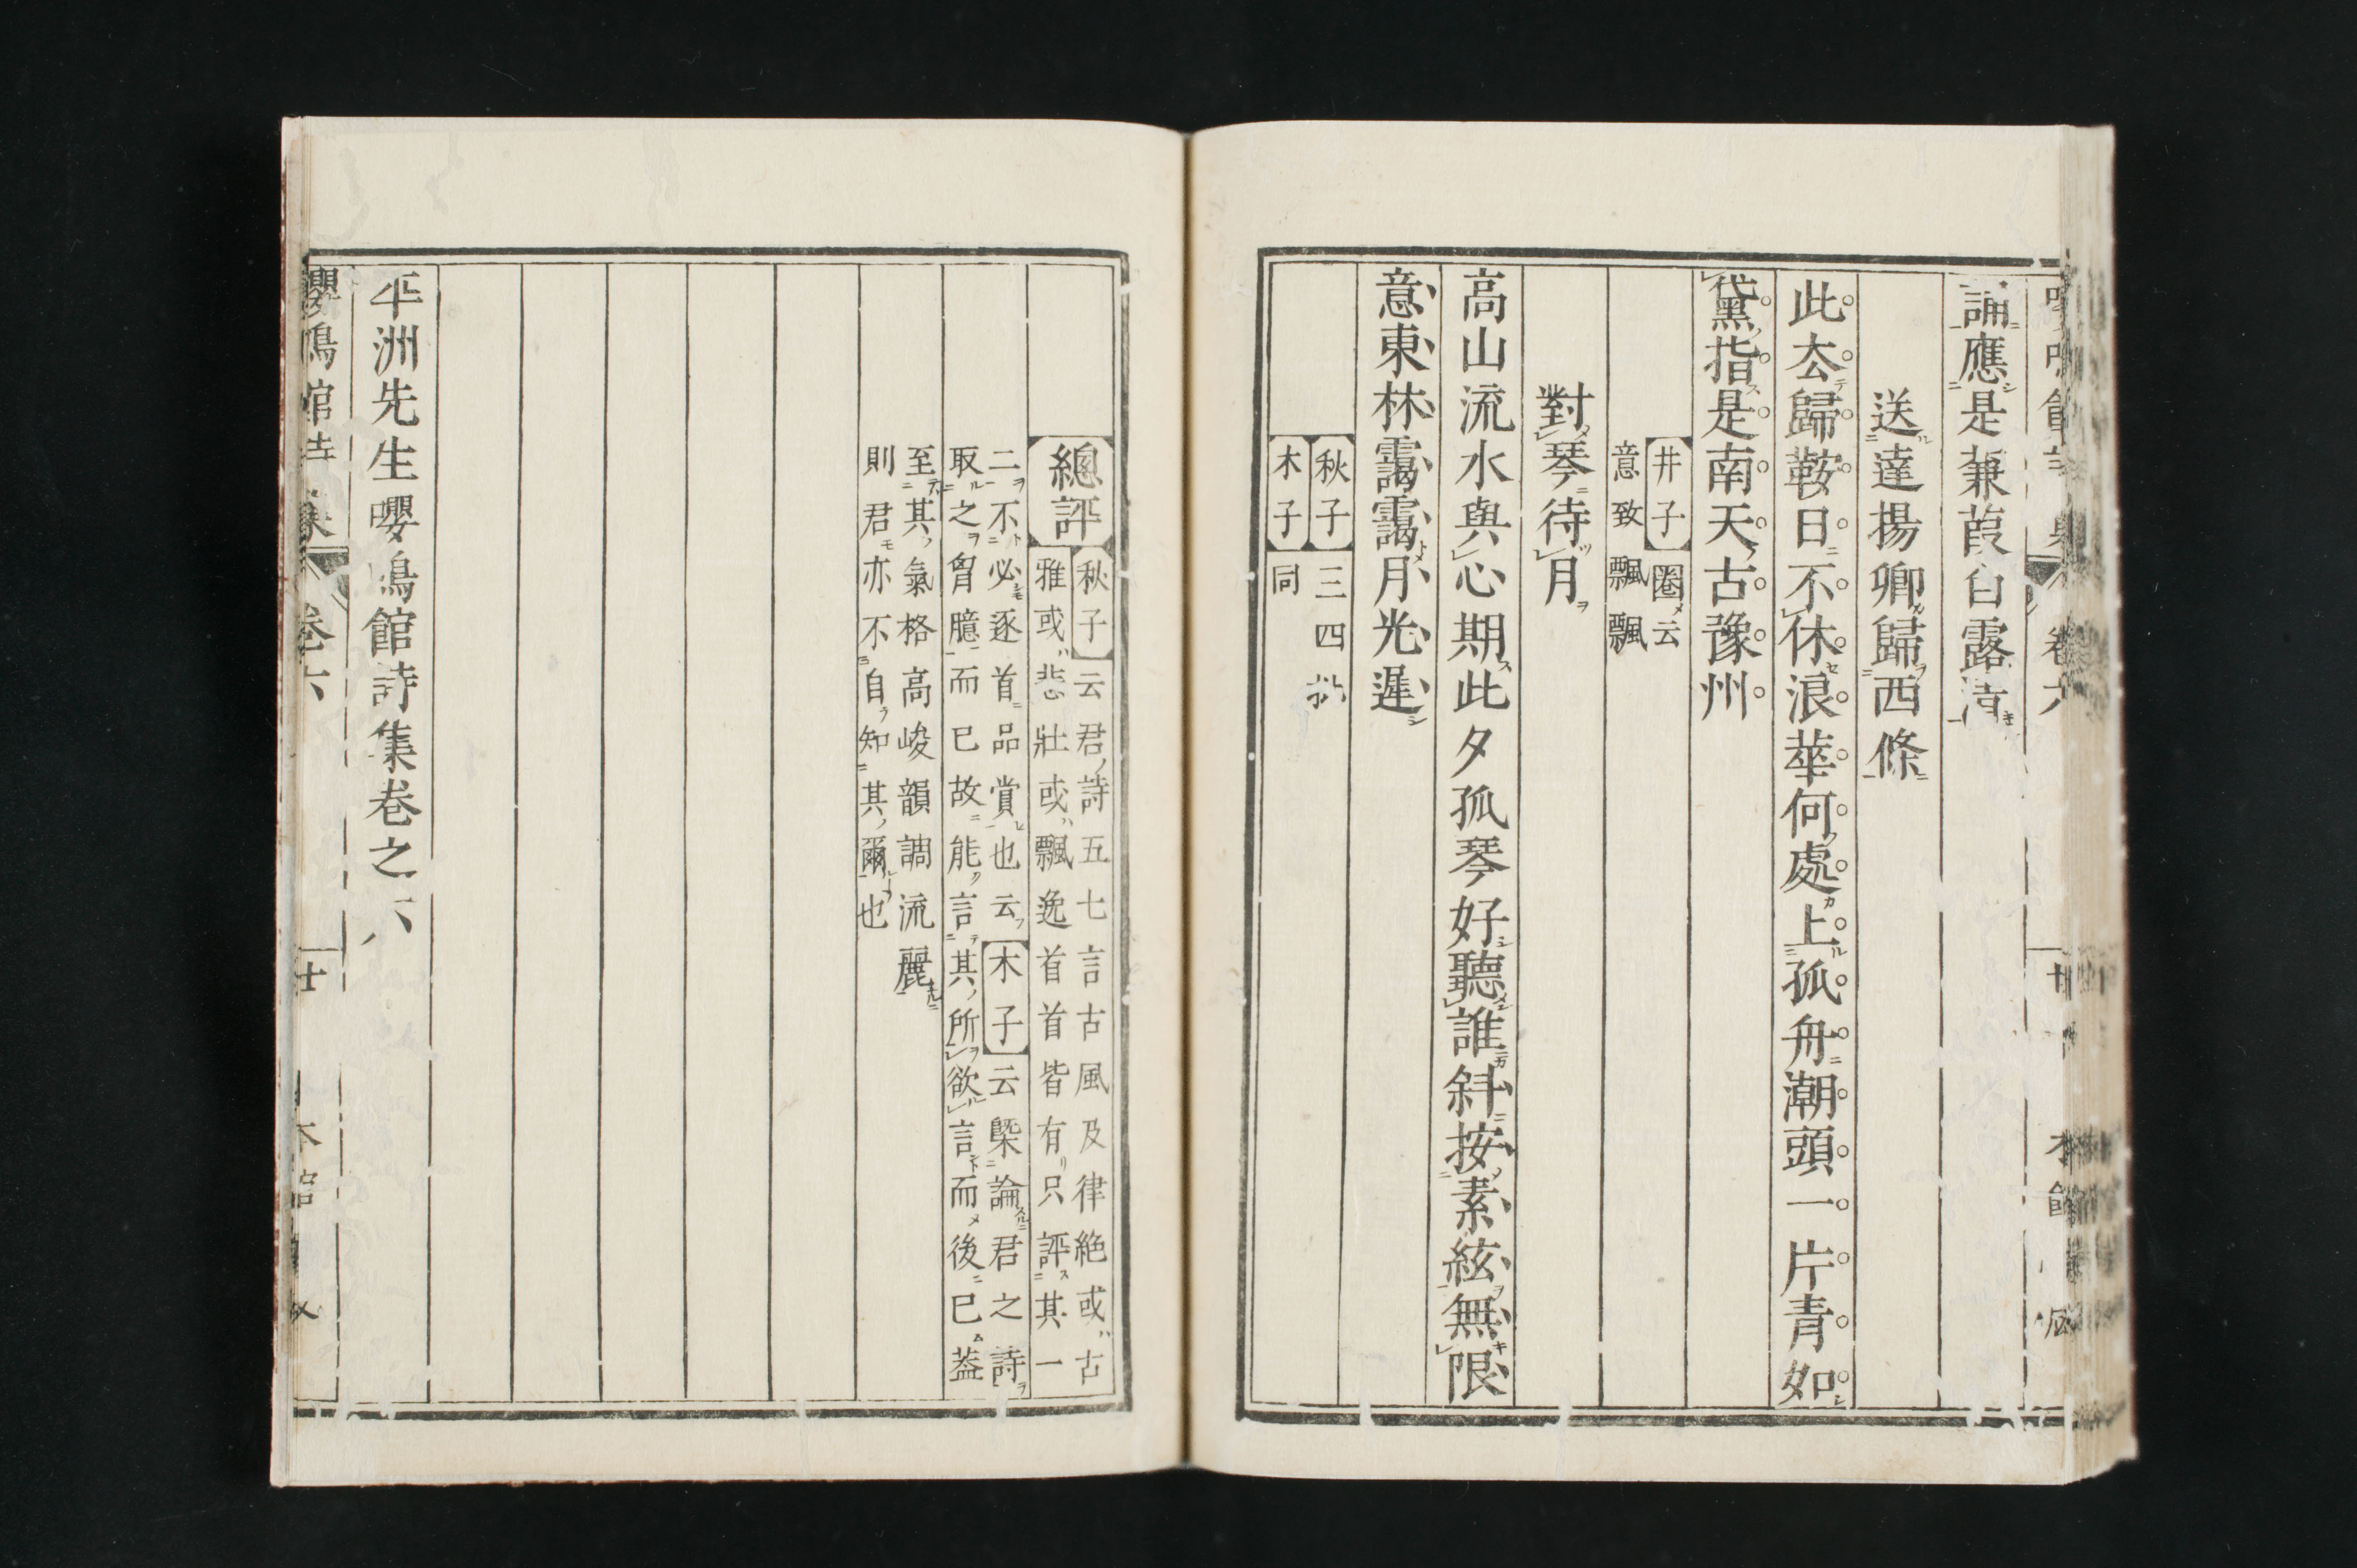 誦應是蒹葭白露淸
送達揚卿歸西條
此去歸鞍日不休浪華何處上孤舟潮頭一片青如
黛指是南天古豫州
井子圈云
意致飄飄
對琴待月
高山流水與心期此夕孤琴好聽誰斜按素絃無限
意東林靄靄月光遲
秋子三四批
木子同
總評
秋子云君詩五七言古風及律絶或古
雅或悲壯或飄逸首首皆有只評其一
二不必逐首品賞也云木子云槩論君之詩
取之胷臆而已故能言其所欲言而後已葢
至其氣格高峻韻調流麗
則君亦不自知其爾也
平洲先生嚶鳴館詩集卷之六
嚶鳴館詩集
卷六